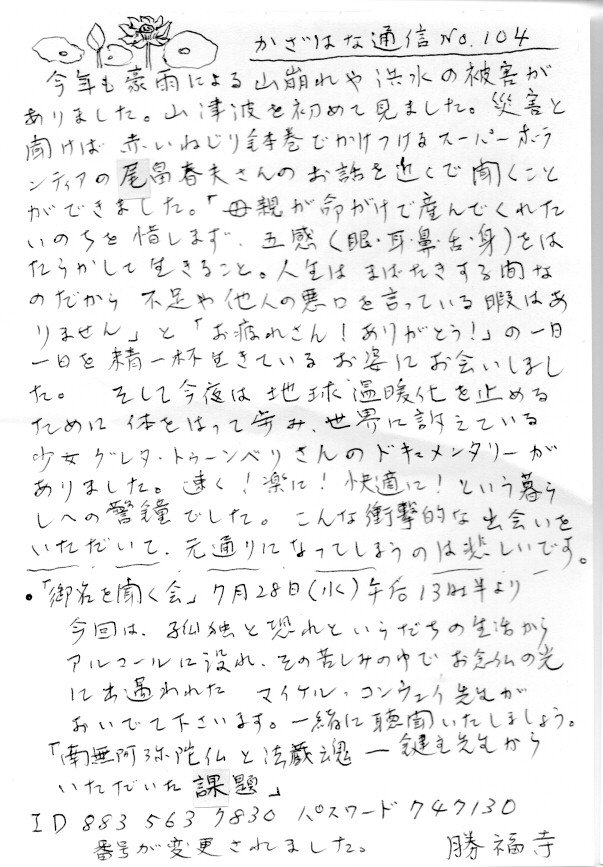 かざはな通信 No.104
今年も豪雨による山崩れや洪水の被害が
ありました。山津波を初めて見ました。災害と
聞けば 赤いねじり鉢巻でかけつけるスーパーボラ
ンティアの尾畠春夫さんのお話を近くで聞くこと
ができました。「母親が命がけで産んでくれた
いのちを惜しまず、五感(眼・耳・鼻・舌・身)をは
たらかして生きること。人生はまばたきする間な
のだから 不足や他人の悪口を言っている暇はあ
りません」と「お疲れさん!ありがとう!」の一日
一日を精一杯生きているお姿にお会いしまし
た。 そして今夜は地球温暖化を止める
ために体をはって歩み、世界に訴えている
少女グレタ・トゥーンベリさんのドキュメンタリーが
ありました。速く!楽に!快適に!という暮ら
しへの警鐘でした。こんな衝撃的な出会いを
いただいて、元通りになってしまうのは悲しいです。
・「御名を聞く会」7月28日(水)午后13時半より
今回は、孤独と恐れといらだちの生活から
アルコールに没れ、その苦しみの中でお念仏の光
に出遇われた マイケル・コンウェイ先生が
おいでて下さいます。一緒に聴聞いたしましょう。
「南無阿弥陀仏と法蔵魂 ― 鍵主先生から
いただいた課題」
ID 883 563 7830 パスワード 747130
番号が変更されました。 勝福寺